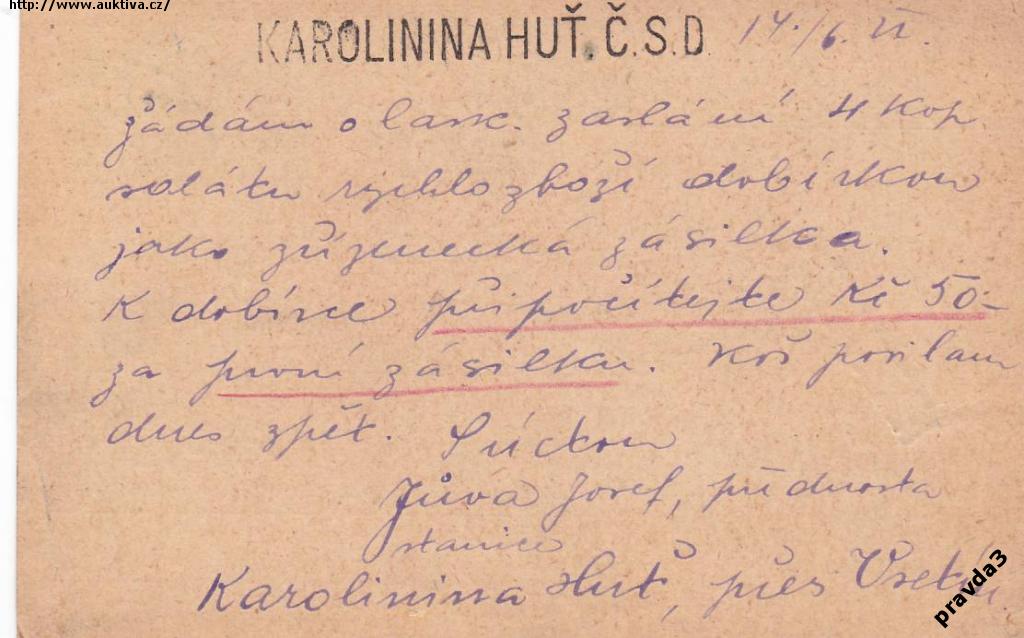 http://www.auktiva.cz/
KAROLININA HUŤ. Č.S.D. 14./6. II.
žádám o lask. zaslání 4 kop
salátu rychlozboží dobírkou
jako zřízenecká zásilka.
K dobírce připočítejte Kč 50.-
za první zásilku. Koš posílam
dnes zpět. S úctou
Jůva Josef, přednosta
stanice
Karolinina Huť, přes Vsetín.
pravda3